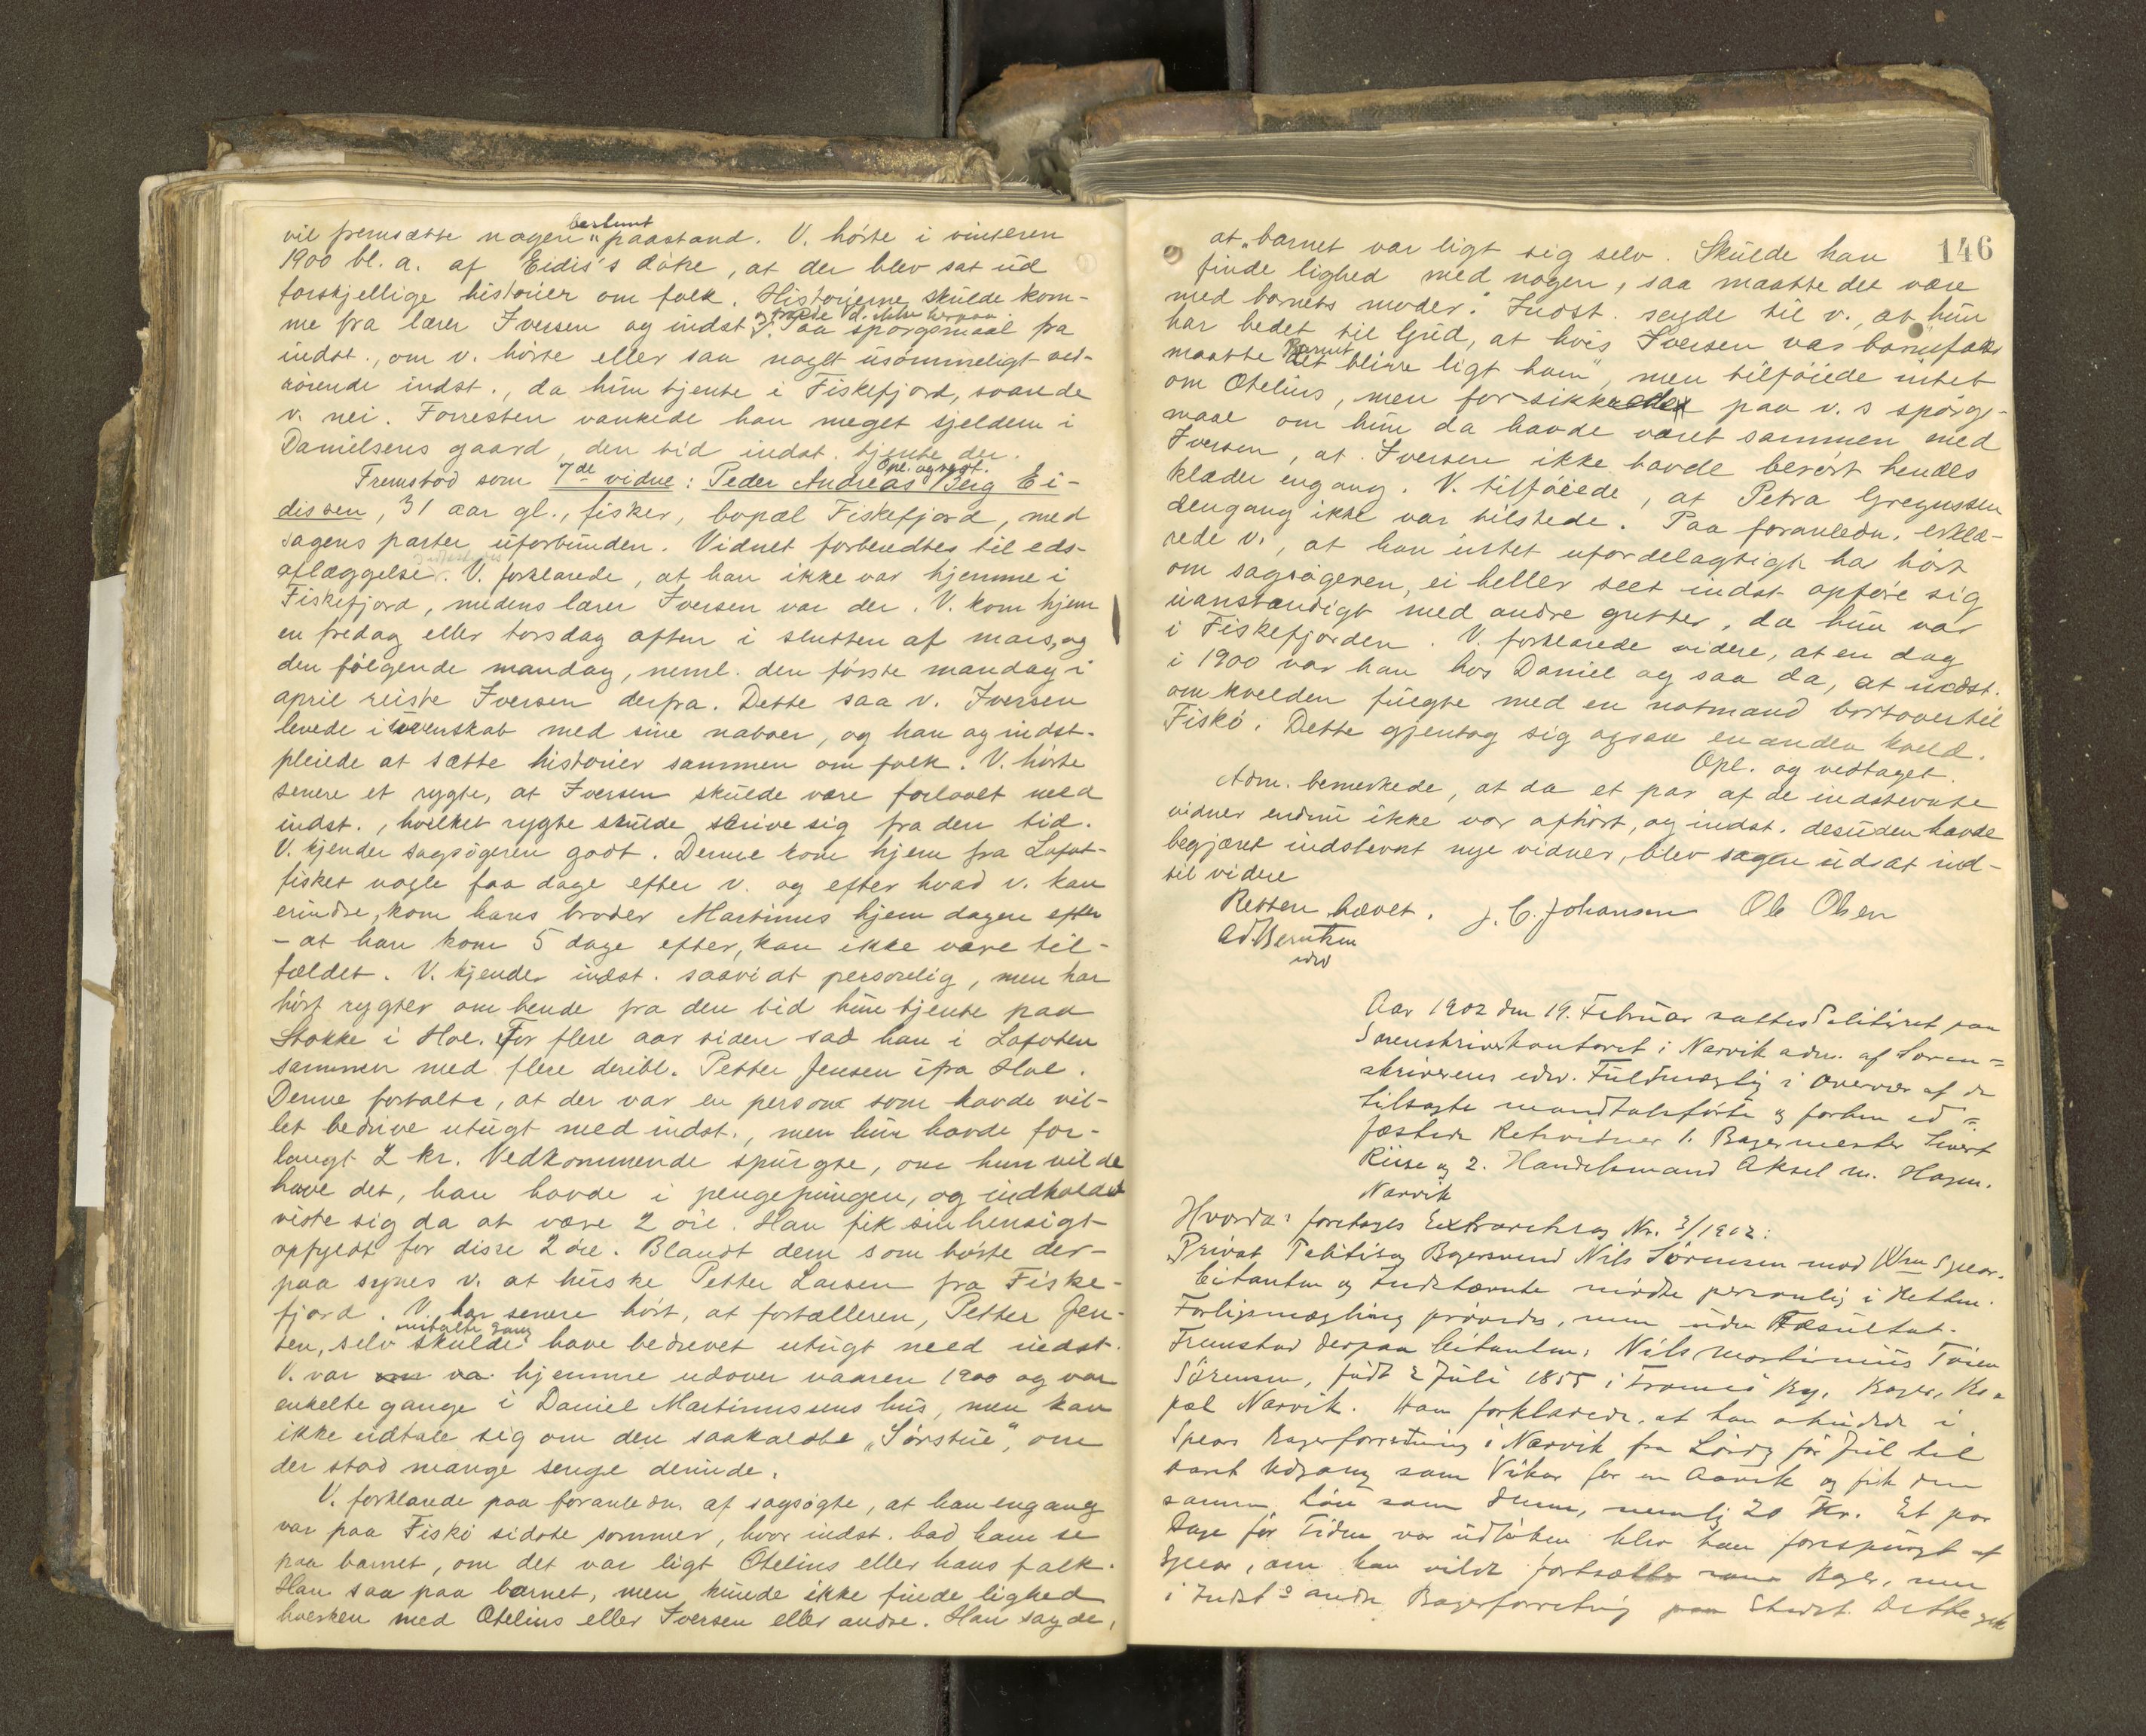 vil fremsætte nogen bestemt paastand. V. hørte i vinteren
1900 bl. a. af Eidis's døtre, at der blev sat ud
forskjellige historier om folk. Historierne skulde kom-
me fra lærer Iversen og indst. Paa spørgsmaal fra
indst., om v. hørte eller saa noget usømmeligt ved-
rørende indst., da hun tjente i Fiskefjord, svarede
v. nei. Forresten vankede han meget sjelden i
Danielsens gaard, den tid indst. tjente der.
Opl. og vedt.
Fremstod som 7de vidne: Peder Andreas Berg Ei-
dissen, 31 aar gl., fisker, bopæl Fiskefjord, med
sagens parter uforbunden. Vidnet forberedtes til eds-
aflæggelse. V. forklarede, at han ikke var hjemme i
Fiskefjord, medens lærer Iversen var der. V. kom hjem
en fredag eller torsdag aften i slutten af mars, og
den følgende mandag, neml. den første mandag i
april reiste Iversen derfra. Dette saa v. Iversen
levede i uvenskab med sine naboer, og han og indst.
pleiede at sætte historier sammen om folk. V. hørte
senere et rygte, at Iversen skulde være forlovet med
indst., hvilket rygte skulde skrive sig fra den tid.
V. kjender sagsøgeren godt. Denne kom hjem fra Lofot-
fisket nogle faa dage efter v. og efter hvad v. kan
erindre, kom hans broder Martinus hjem dagen efter
- at han kom 5 dage efter, kan ikke være til-
fældet. V. kjender indst. saavidt personlig, men har
hørt rygter om hende fra den tid hun tjente paa
Stokke i Hol. For flere aar siden sad han i Lofoten
sammen med flere deribl. Petter Jensen ifra Hol.
Denne fortalte, at der var en person som havde vil-
let bedrive utugt med indst., men hun havde for-
langt 2 kr. Vedkommende spurgte, om hun vilde
have det, han havde i pengepungen, og indholdet
viste sig da at være 2 øre. Han fik sin hensigt
opfyldt for disse 2 øre. Blandt dem som hørte der-
paa synes v. at huske Petter Larsen fra Fiske-
fjord. V. har senere hørt, at fortælleren, Petter Jen-
sen, selv skulde have bedrevet utugt med indst.
V. var hjemme udover vaaren 1900 og var
enkelte gange i Daniel Martinussens hus, men kan
ikke udtale sig om den saakaldte „Sørstue", om
der stod mange senge derinde.
V. forklarede paa foranledn. af sagsøgte, at han engang
var paa Fiskø sidste sommer, hvor indst. bad ham se
paa barnet, om det var ligt Otelius eller hans folk.
Han saa paa barnet, men kunde ikke finde lighed
hverken med Otelius eller Iversen eller andre. Han sagde,
146
at „barnet var ligt sig selv. Skulde han
finde lighed med nogen, saa maatte det være
med barnets moder." Indst. sagde til v., at hun
har bedet til Gud, at hvis Iversen var barnefader
maatte Barnet blive ligt ham", men tilføiede intet
om Otelius, men forsikkrede paa v.s spørgs-
maal om hun da havde været sammen med
Iversen, at Iversen ikke havde berørt hendes
klæder engang. V. tilføiede, at Petra Gregussen
dengang ikke var tilstede. Paa foranledn. erklæ-
rede v., at han intet ufordelagtigt har hørt
om sagsøgeren, ei heller seet indst. opføre sig
uanstændigt med andre gutter, da hun var
i Fiskefjorden. V. forklarede videre, at en dag
i 1900 var han hos Daniel og saa da, at indst.
om kvelden fulgte med en notmand bortover til
Fiskø. Dette gjentog sig ogsaa en anden kveld.
Opl. og vedtaget.
Adm. bemerkede, at da et par af de indstevnte
vidner endnu ikke var afhørt, og indst. desuden havde
begjæret indstevnt nye vidner, blev sagen udsat ind-
til videre
Retten hævet. J. C. Johansen Ole Olsen
Ad. Berntsen
edsv
Aar 1902 den 19. Februar sattes Politiret paa
Sorenskriverkontoret i Narvik adm. af Soren-
skriverens edsv. Fuldmægtig i Overvær af de
tilsagte mandtalsførte og forhen ed-
fæstede Retsvidner 1. Bagermester Sivert
Riise og 2. Handelsmand Aksel M. Hagen.
Narvik
Hvorda: foretoges Extraretssag Nr. 3/1902:
Privat Politisag Bagersvend Nils Sørensen mod Wm Spear.
Citanten og Indstævnte mødte personlig i Retten.
Forligsmægling prøvedes, men uden Resultat.
Fremstod derpaa Citanten: Nils Martinius
Sørensen, født 2 Juli 1855 i Tromsø By, Bager, Bo-
pæl Narvik. Han forklarede, at han arbeidede i
Spears Bagerforretning i Narvik fra Lørdag før Jul til
aarets Udgang som Vikar for en Aarvik og fik den
samme Løn som denne, nemlig 20 Kr. Et par
Dage før Tiden var udløben blev han forespurgt af
Spear, om han vilde fortsætte som Bager, men
i Indst.s anden Bagerforretning paa Stedet. Dette gik